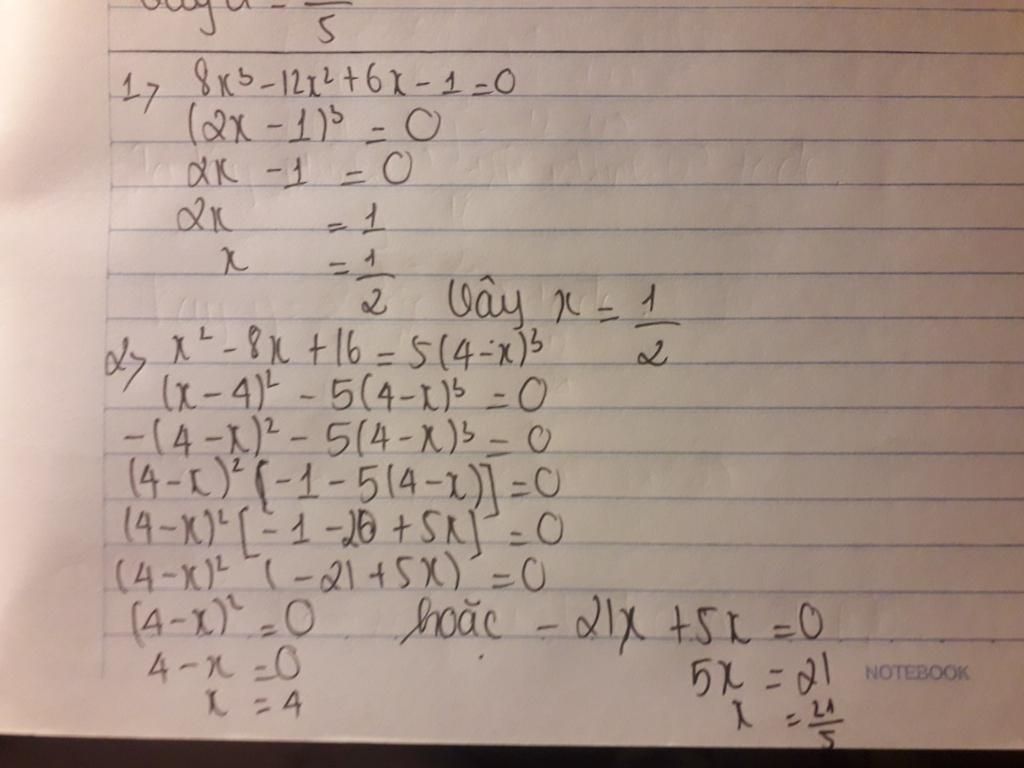 5
1> 8x³ - 12x² + 6x - 1 = 0
(2x - 1)³ = 0
2x - 1 = 0
2x = 1
x = 1/2
Vây x = 1/2
2> x² - 8x + 16 = 5(4 - x)³
(x - 4)² - 5(4 - x)³ = 0
-(4 - x)² - 5(4 - x)³ = 0
(4 - x)² [-1 - 5(4 - x)] = 0
(4 - x)² [-1 - 20 + 5x] = 0
(4 - x)² (-21 + 5x) = 0
(4 - x)² = 0 hoặc - 21x + 5x = 0
4 - x = 0 5x = 21
NOTEBOOK
x = 4 x = 21/5